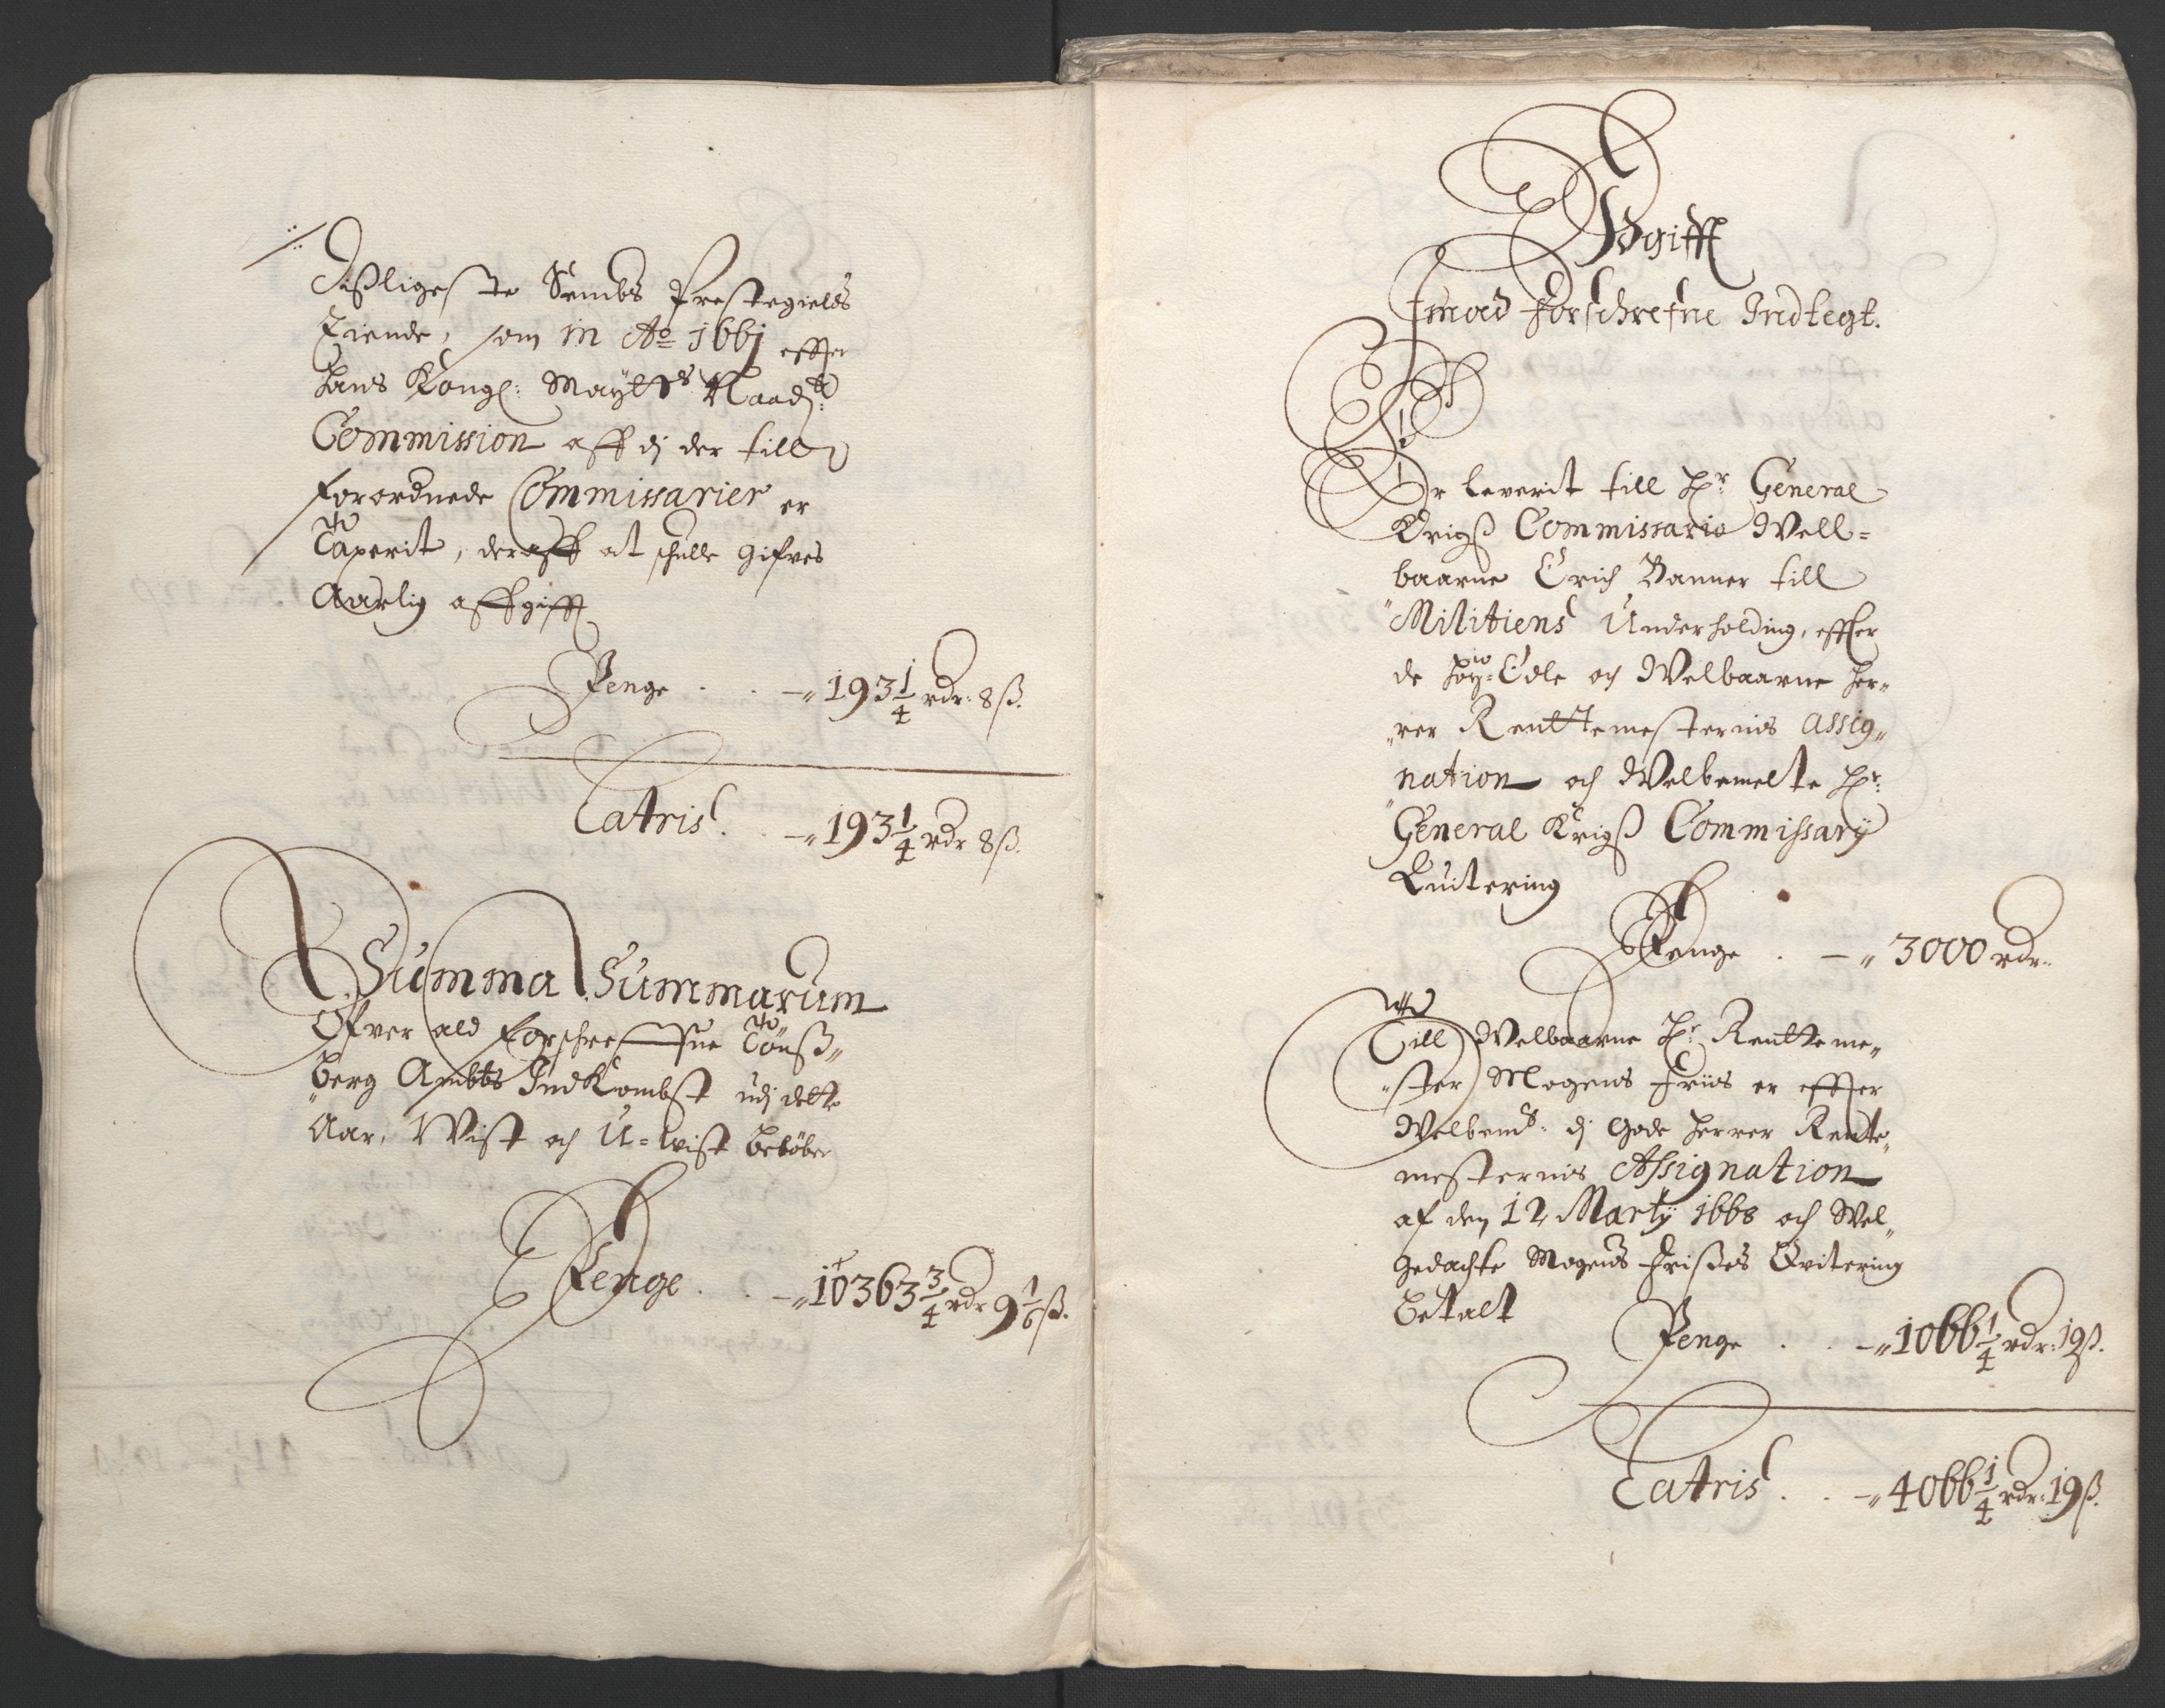 Disligeste Sembs Prestegields
Tiende, som in Ao 1661 effter
Hans Kongl: Maytts Naadst:
Commission aff dj der till
forordnede Commissarier er
Taxerit, deraff at schulle gifves
Aarlig affgifft
Penge . . —„ 193 1/4 rdr: 8 ß.
Latris . . —„ 193 1/4 rdr 8 ß.
Summa Summarum
Ofver ald forschrefne Tönß„
„berg Ambts IndKombst udj dette
Aar, Wist och U-wist beløber
Penge . . —„ 10363 3/4 rdr 9 1/6 ß.
Udgifft
Imod forschrefne Indtegt.
Er leverit till Hr General
Krigß Commissario Well=
baarne Erich Banner till
Militiens Underholding, effter
de Höy=Edle och Welbaarne Her„
„rer Renttemesternis assig„
nation och Welbemelte Hr:
General Krigß Commissarÿ
Quitering
Penge . —„ 3000 rdr.
Till Welbaarne Hr Rentteme„
„ster Mogens Friis er effter
Welbemte: dj gode Herrer Rente„
mesternis Assignation
af den 12 Martÿ 1668 och Wel„
gedachte Mogens Frises Qvitering
betalt
Penge . . —„ 1066 1/4 rdr: 19 ß.
Latris . . —„ 4066 1/4 rdr: 19 ß.